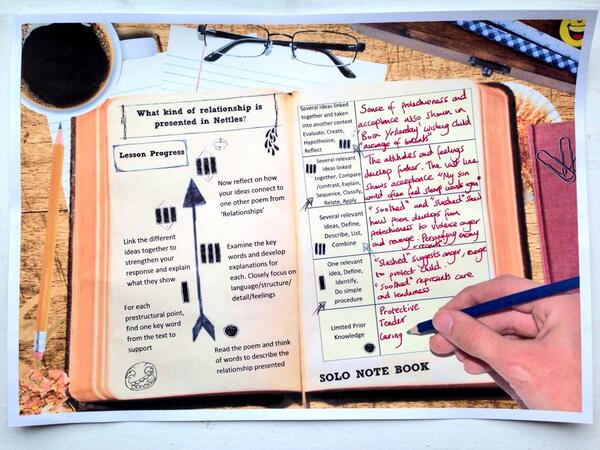 What kind of relationship is
presented in Nettles?
Lesson Progress
Now reflect on how
your ideas connect to
one other poem from
'Relationships'
Link the different
ideas together to
strengthen your
response and explain
what they show
Examine the key
words and develop
explanations for
each. Closely focus on
language/structure/
detail/feelings
For each
prestructural point,
find one key word
from the text to
support
Read the poem and think
of words to describe the
relationship presented
Several ideas linked
together and taken
into another context
Evaluate, Create,
Hypothesise,
Reflect
Sense of protectiveness and
acceptance also shown in
"Born Yesterday" wishing child
"average of talents"
Several relevant
ideas linked
together, Compare
/contrast, Explain,
Sequence, Classify,
Relate, Apply
The attitudes and feelings
develop further. The last line
shows acceptance "My son
would often feel sharp wounds again"
Several relevant
ideas, Define,
Describe, List,
Combine
"Soothed" and "slashed" show
how poem develops from
protectiveness to violence anger
and revenge. Personifying enemy
One relevant
idea, Define,
Identify,
Do simple
procedure
"Slashed" suggests anger,
to protect child.
"Soothed" represents care
and tenderness
Limited Prior
Knowledge
Protective
Tender
Caring
SOLO NOTE BOOK